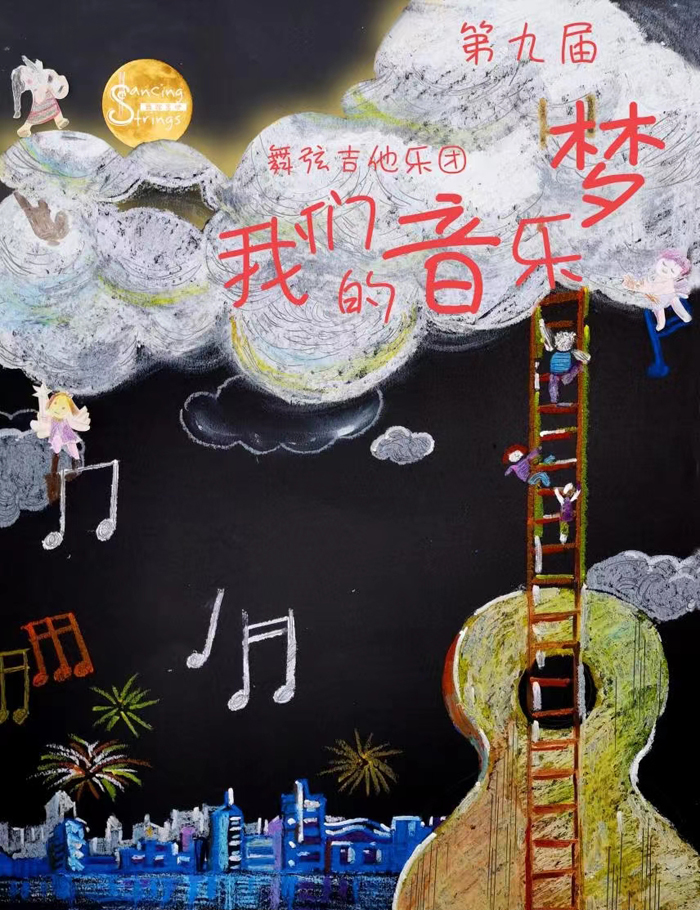 第九届
Dancing
Strings
舞弦吉他乐团
我们的音乐梦